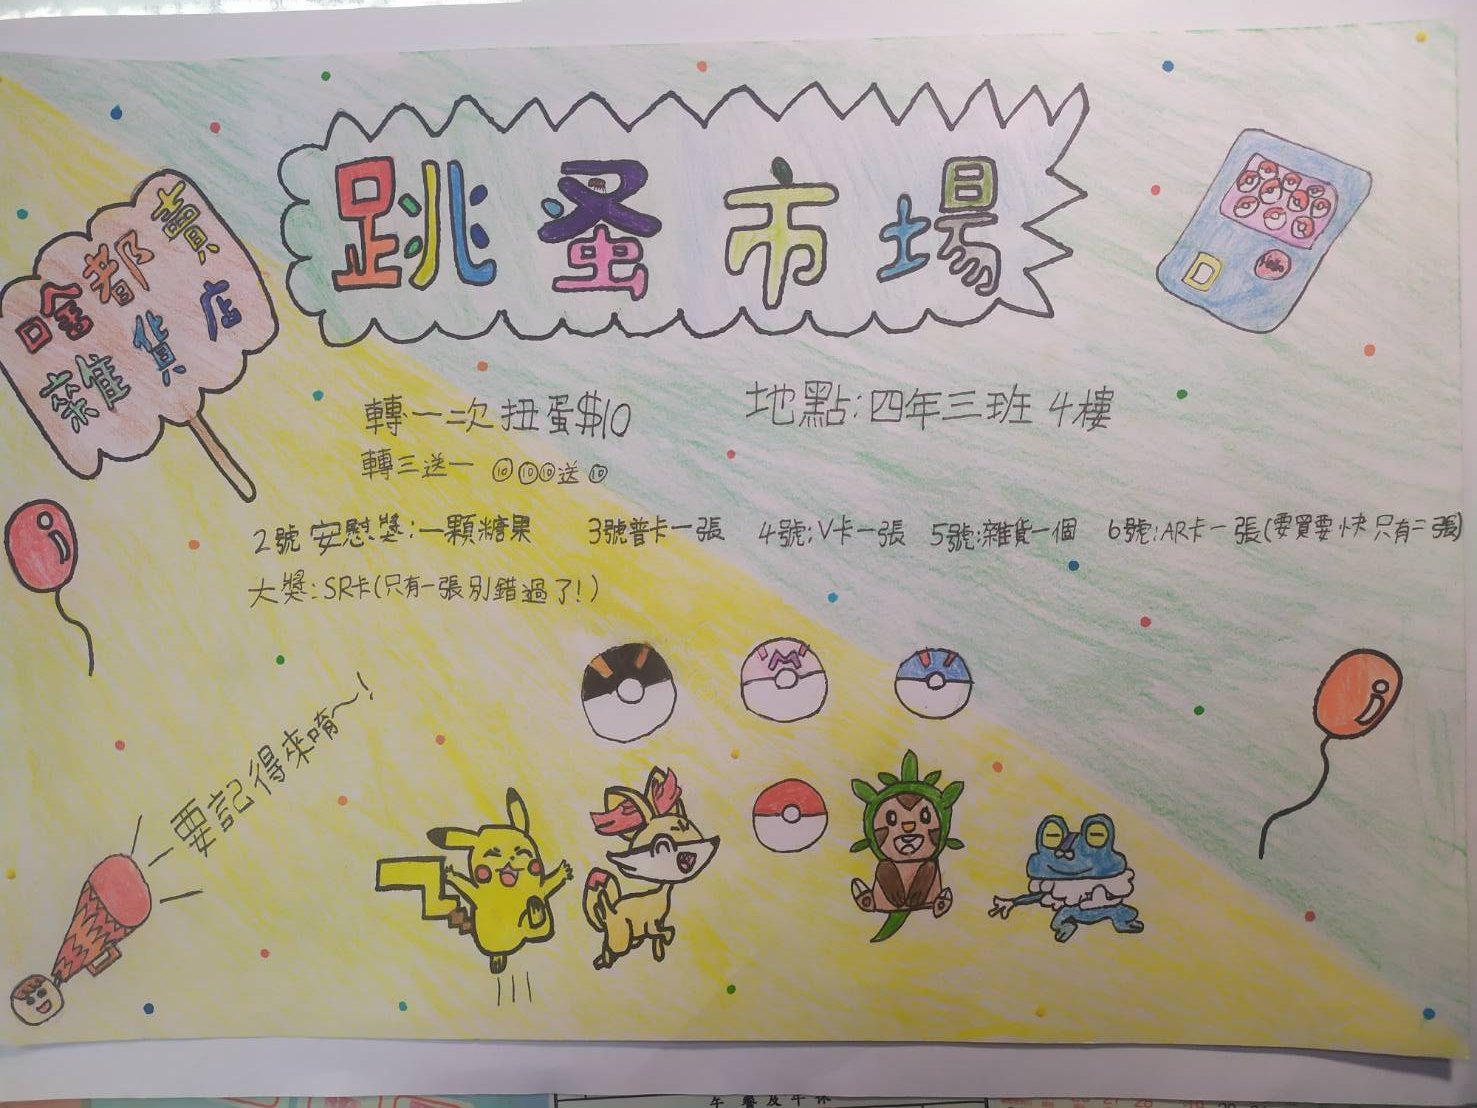 跳蚤市場
啥都賣
雜貨店
Hello
轉一次扭蛋$10
地點:四年三班 4樓
轉三送一 ⑩⑩⑩送⑩
2號 安慰獎:一顆糖果 3號普卡一張 4號:V卡一張 5號:雜貨一個 6號:AR卡一張(要買要快只有二張)
大獎:SR卡(只有一張別錯過了!)
M
一要記得來唷~!